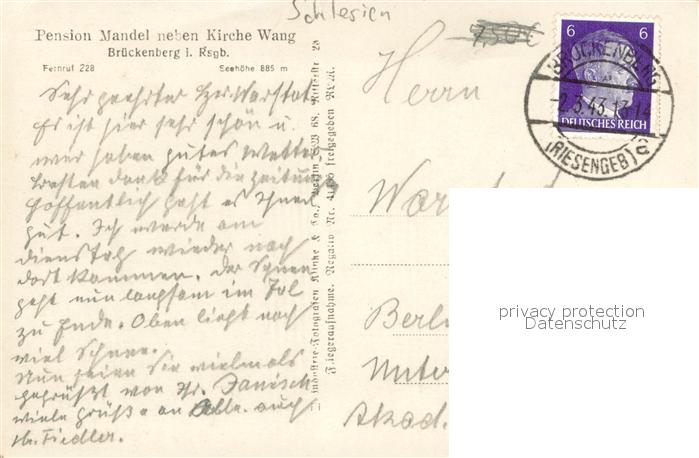 Schlesien
7,50€
Pension Mandel neben Kirche Wang
Brückenberg i. Rsgb.
Fernruf 228 Seehöhe 885 m
Sehr geehrter Herr Warstat
Es ist hier sehr schön u.
wir haben gutes Wetter
besten Dank für die Zeitung
hoffentlich geht es Ihnen
gut. Ich werde am
Dienstag wieder nach
dort kommen. Der Schnee
geht nun langsam im Tal
zu Ende. Oben liegt noch
viel Schnee.
Nun seien Sie vielmals
gegrüßt von Ihr. Janisch
viele Grüße an alle. auch
Fiedler.
Industrie-Fotografen Klinke & Co., Berlin SW 68, Ritterstr. 2
Fliegeraufnahme. Negativ Nr. freigegeben RLM.
Herrn
Berlin
Unter
Akad.
6 6
DEUTSCHES REICH
BRÜCKENBERG
-2.5.43.13-14
(RIESENGEB)
privacy protection
Datenschutz